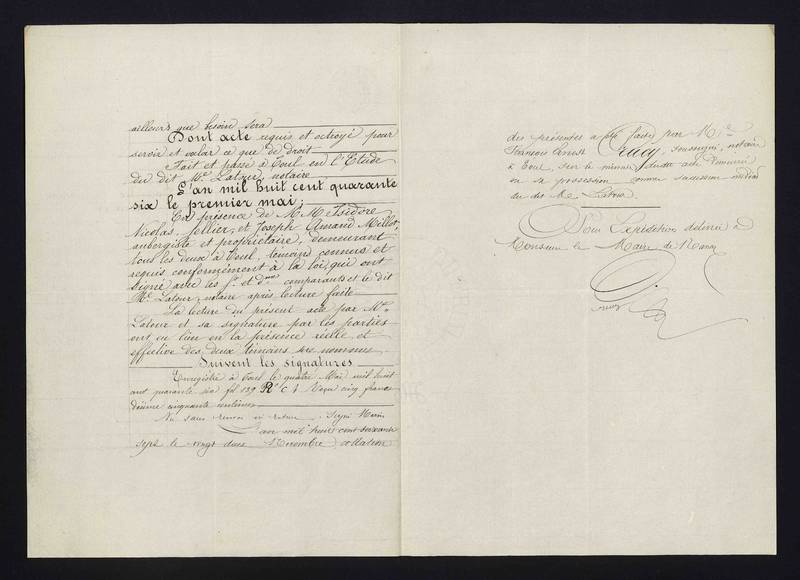 ailleurs que besoin sera
Dont acte requis et octroyé pour
servir et valoir ce que de droit
Fait et passé à Toul en l'Etude
du dit Me Latour, notaire
L'an mil huit cent quarante
six le premier mai;
En présence de MM. Isidore
Nicolas Jellier, et Joseph Amand Millot,
aubergiste et propriétaire, demeurant
tous les deux à Toul, témoins connus et
requis conformément à la loi, qui ont
signé avec les Sr. et dme comparants et le dit
Me. Latour, notaire après lecture faite
La lecture du présent acte par Me.
Latour et sa signature par les parties
ont eu lieu en la présence réelle et
effective des deux témoins sus nommés
Suivent les signatures
Enregistré à Toul le quatre Mai mil huit
cent quarante six fol 139 Ro C. Reçu cinq francs
dixième cinquante centimes
Signé
L'an mil huit cent soixante
sept le vingt deux Novembre collation
des présentes a été faite par Me
François Ernest Cruey, soussigné, notaire
à Toul, sur la minute dudit acte demeurée
en sa possession comme successeur médiat
du dit Me Latour.
Pour Expédition délivrée à
Monsieur le Maire de Nancy